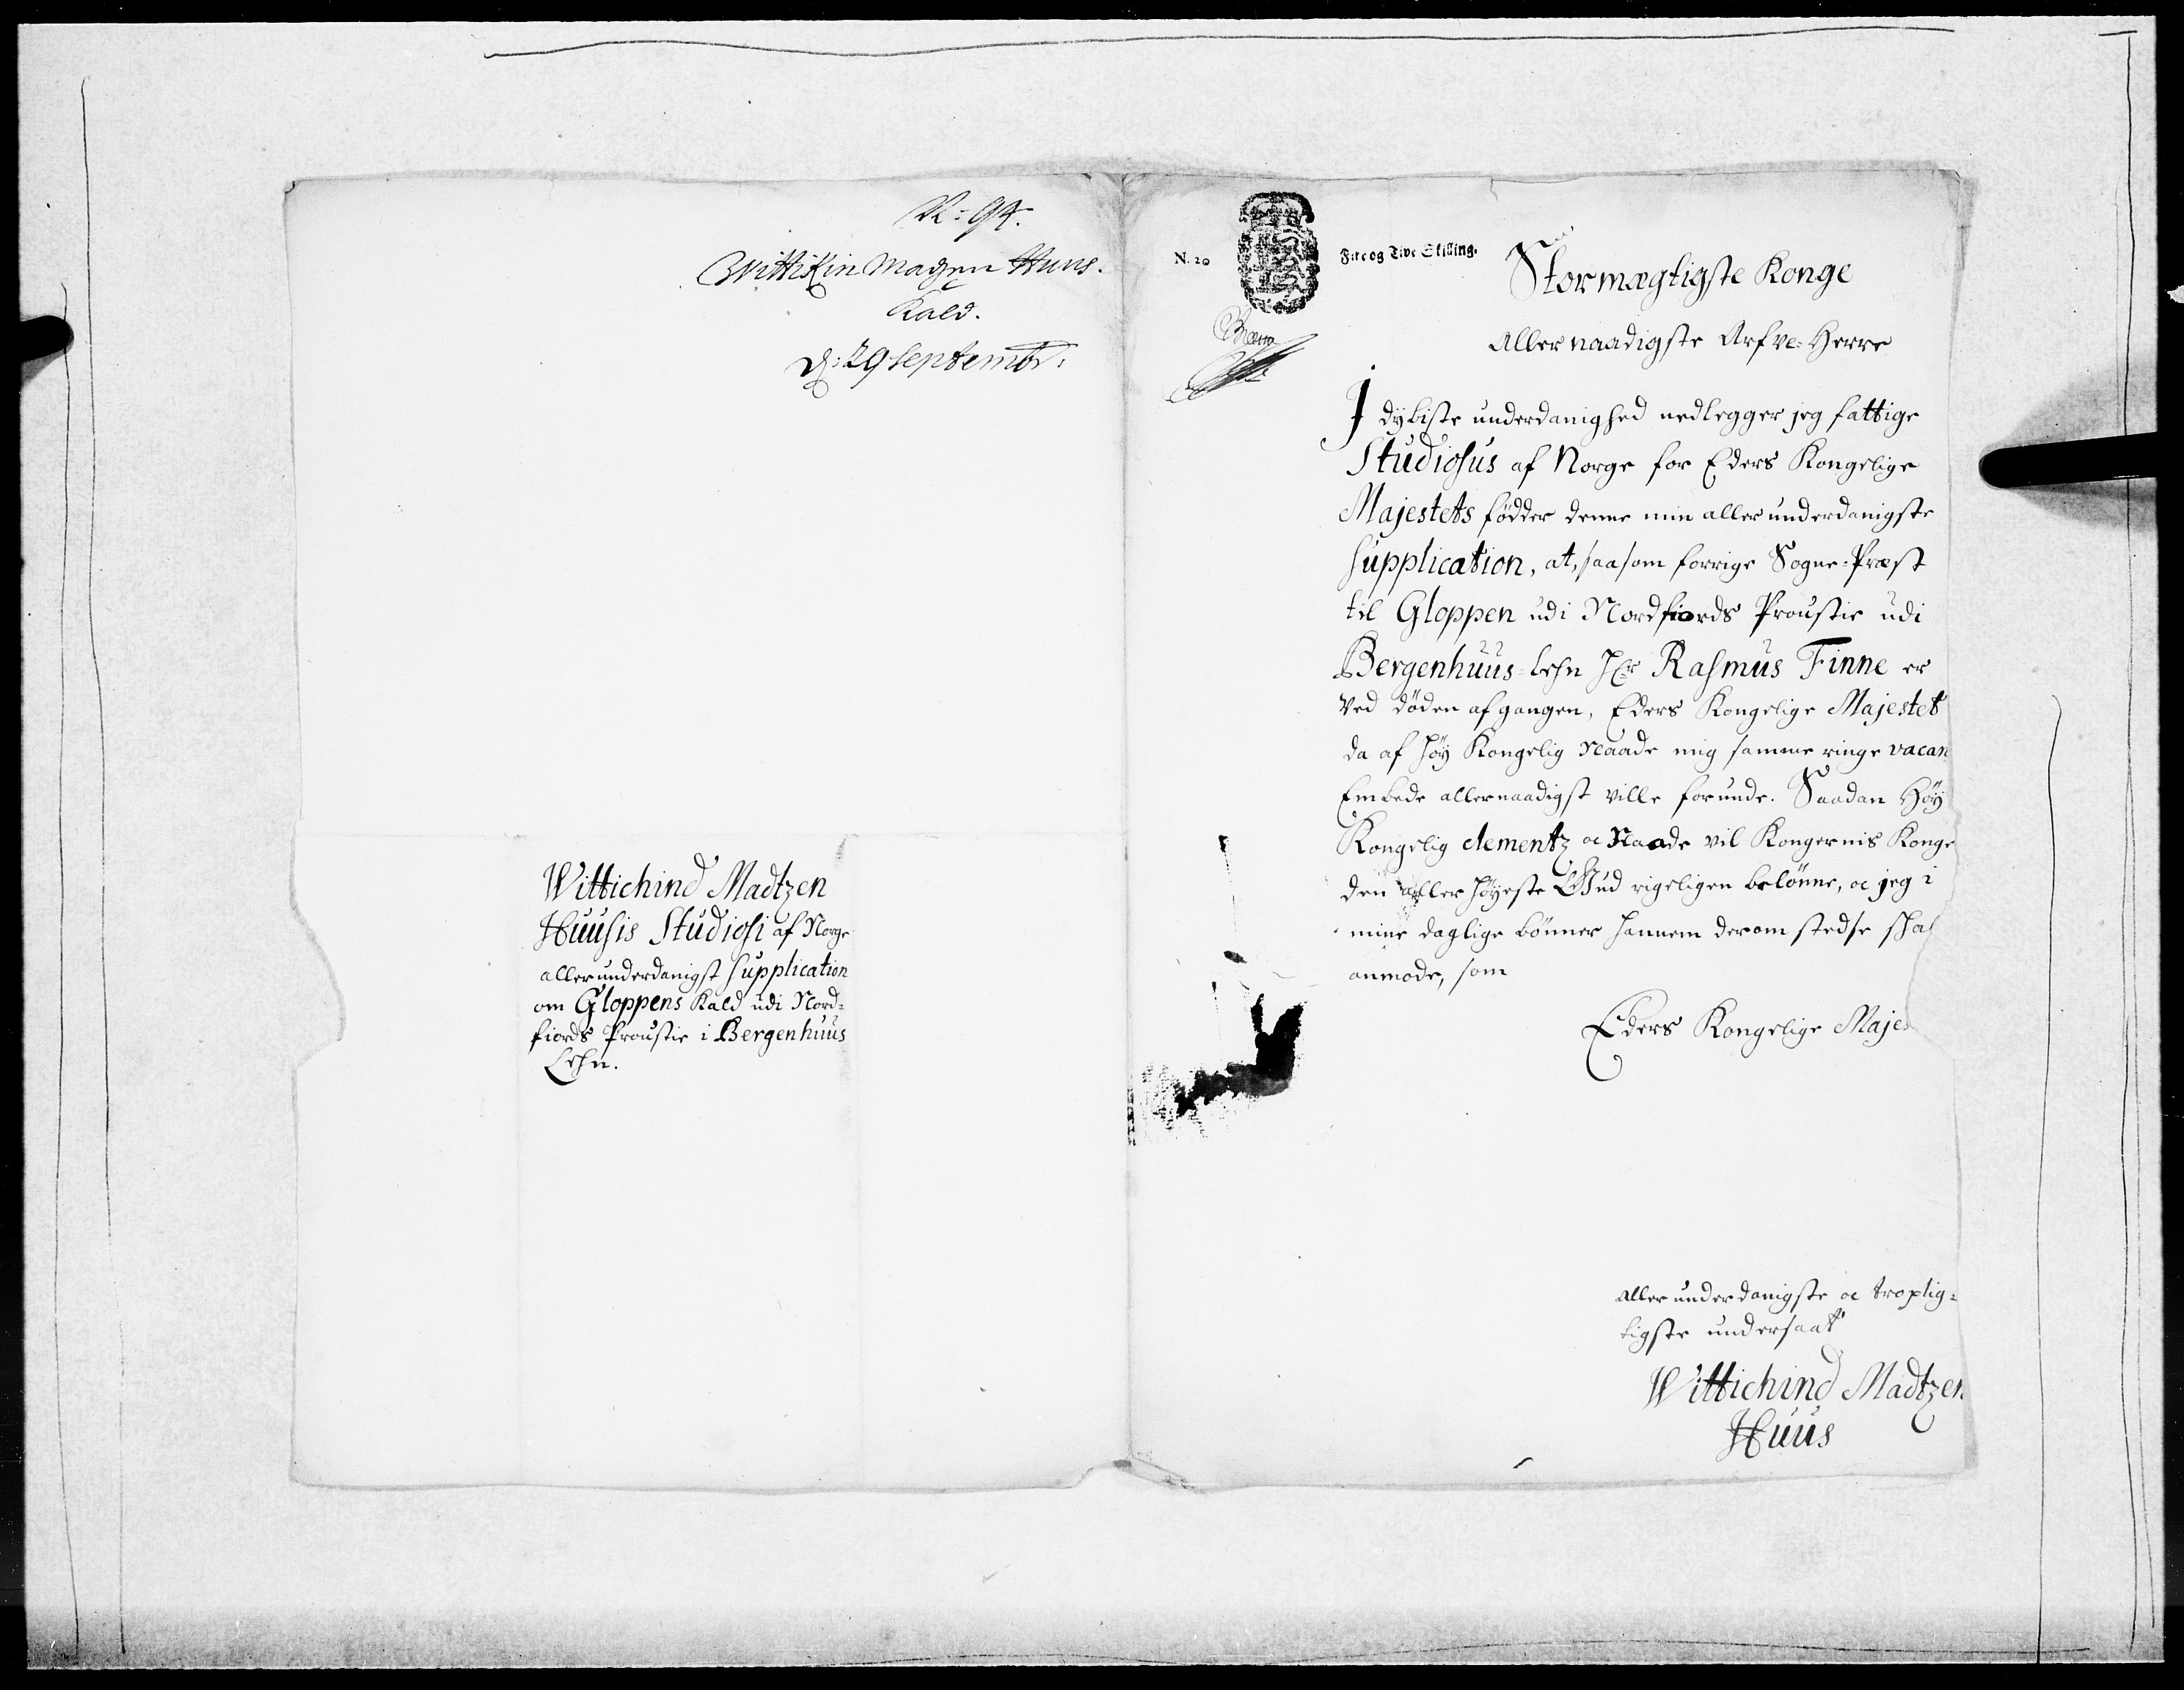 N: 94.
Wittikin Madzen Huus.
Kald.
d: 29 Septembr:
Wittichind Madtzen
Huusis Studiosi af Norge
allerunderdanigst Supplication
om Gloppens Kald udi Nord=
fiords Proustie i Bergenhuus
Lehn.
N. 20
Fire og Tive Skilling.
Stormægtigste Konge
Allernaadigste Arfve-Herre
I dybiste underdanighed nedlegger jeg fattige
Studiosus af Norge for Eders Kongelige
Majestets födder denne min allerunderdanigste
Supplication, at, saasom forrige Sogne-Præst
til Gloppen udi Nordfiords Proustie udi
Bergenhuus-Lehn Hr Rasmus Finne er
ved döden afgangen, Eders Kongelige Majestet
da af höy Kongelig Naade mig samme ringe vacan
Embede allernaadigst ville forunde. Saadan Höy
Kongelig clementz oc Naade vil Kongernis Konge
den allerhöyeste Gud rigeligen belönne, oc jeg i
mine daglige bönner hannem derom stedse skal
anmode, som
Eders Kongelige Majes
allerunderdanigste oc tropligs=
tigste undersaat
Wittichind Madtzen
Huus